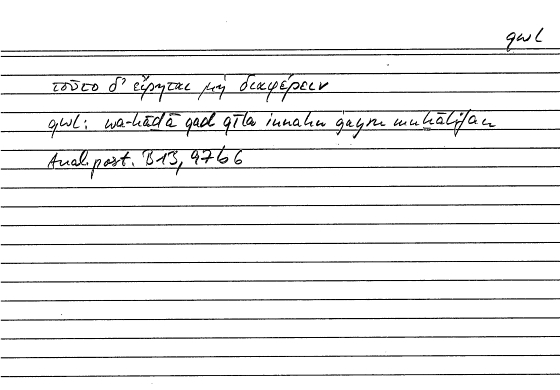 qwl
τοῦτο δ' εἴρηται μὴ διαφέρειν
qwl: wa-hāḏā qad qīla innahu ġayru muḫālifan
Anal. post. B13, 97b6